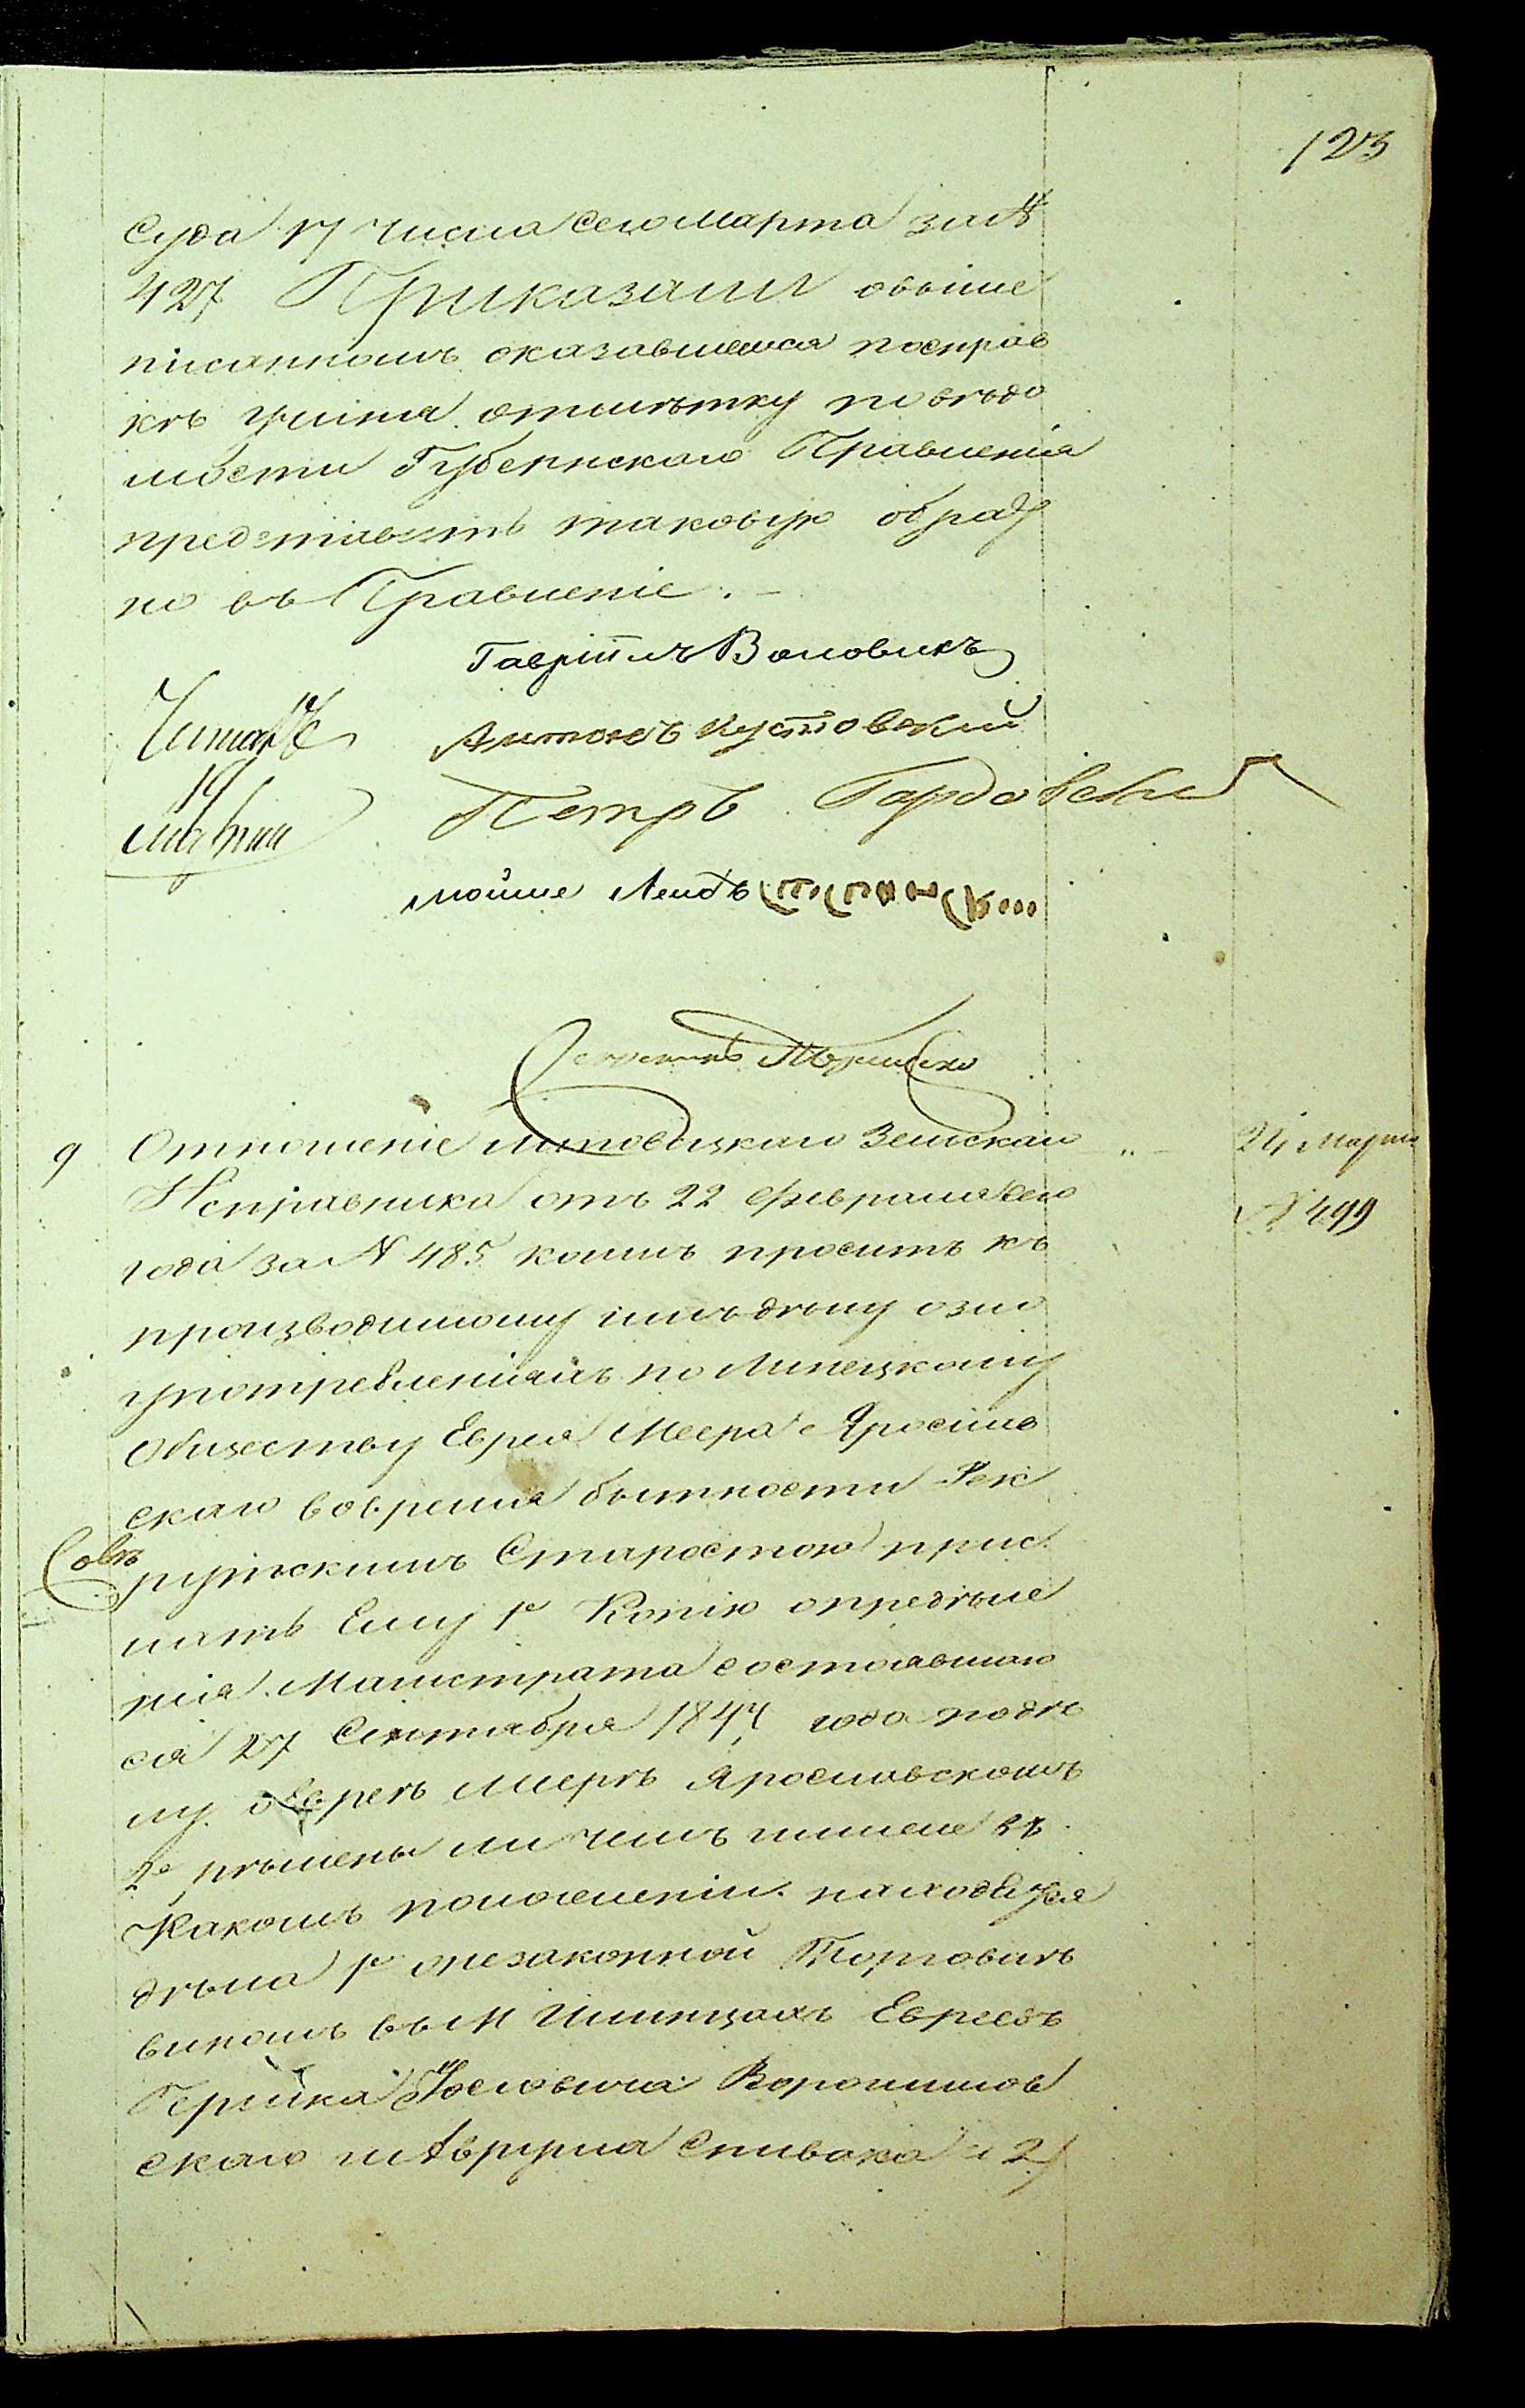 123
Суда 17 числа сего Марта за №
427 Приказали овыше
писанномъ оказавшемся посправ
кѣ учиня отмѣтку по вѣдо
мости Губернскаго Правленія
представить таковую обрат
но въ Правленіе. —
Гавріилъ Воловикъ
Читалъ Антонъ Кустовскій
19 Петръ Гардовскій
Марта
Мойше Лейбъ
Секретарь
9 Отношеніе Литовецкаго Земскаго „ — 24 Марта
Исправника отъ 22 февраля сего № 499
года за № 485 коимъ проситъ къ
производимому имъ дѣлу озло
употребленіяхъ по Липецкому
Обществу Еврея Меера Яросла
скаго вовремя бытности Рек
рутскимъ Старостою прис
лать Ему 1е Копію опредѣле
нія Магистрата состоявшаго
ся 27 Сентября 1844 года подѣ
лу оЕвреѣ Меерѣ Ярославскомъ
2е рѣшены ли чемъ или еще въ
Какомъ положеніи находятся
дѣла 1е онезаконной Торговлѣ
виномъ въ М Илинцахъ Евреевъ
Гершка Іосіовича Воропиков
скаго и Аврума Спивака и 2/